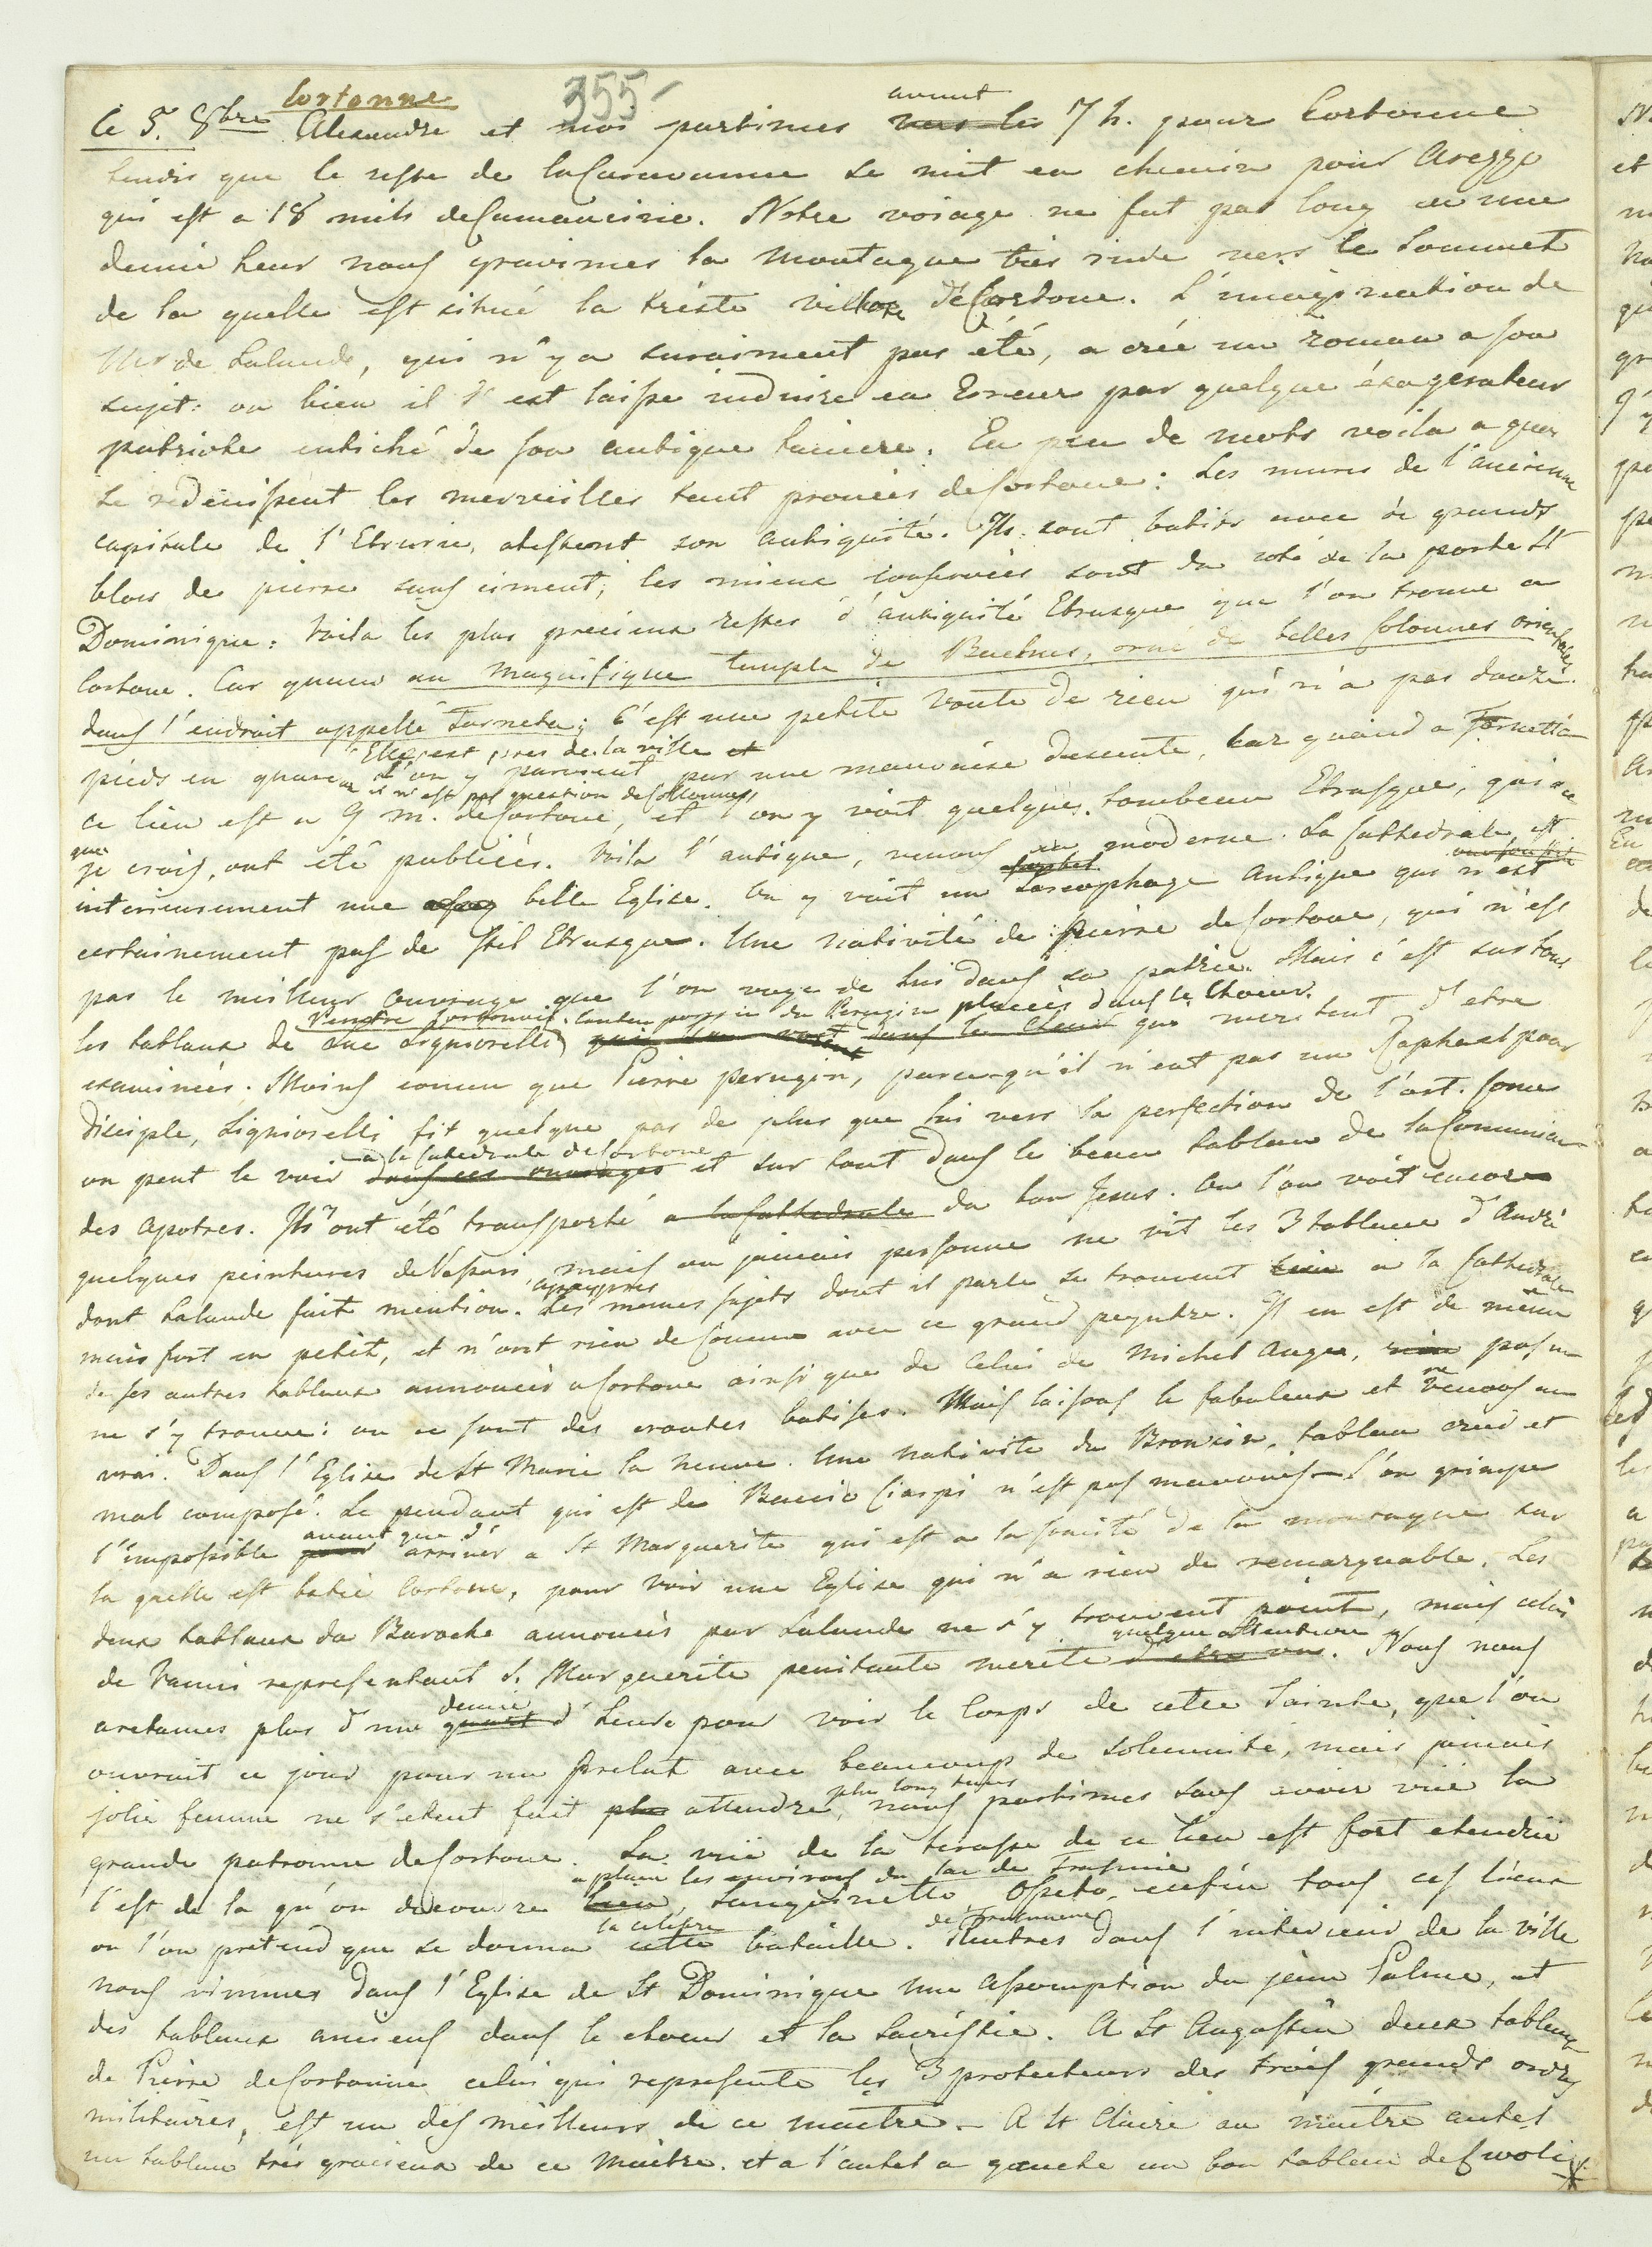 Cortonne
355
Ce 5. 8bre Alexandre et moi partimes avant 7 h. pour Cortonne
tandis que le reste de la Caravanne se mit en chemin pour Arezzo
qui est a 18 mils de Camoucirie. Notre voiage ne fut pas long en une
demie heur nous gravimes la Montagne très rude vers le Sommet
de la quelle est situé la triste ville de Cortone. L'imagination de
Mr de Lalande, qui n'y a surement pas été, a crée un roman a son
sujet: ou bien il s'est laissé induire en Erreur par quelque éxagerateur
patriote entiché de son antique taniere. En peu de mots voila a quoi
se reduissent les merveilles tant pronées de Cortone: Les murs de l'ancienne
capitale de l'Etrurie, attestent son antiquité. Ils sont batis avec de grands
blocs de pierre sans ciment; les mieux conservées sont du coté de la porte St
Dominique: Voila les plus precieux restes d'antiquité Etrusque que l'on trouve a
Cortone. Car quand au magnifique temple de Bachus, orné de belles Colonnes orientales
dans l'endroit appellé Tarneta; C'est une petite Voute de rien qui n'a pas douze
pieds en quarré il n'est pas question de Collonnes, Elle est pres de la ville et l'on y parvient par une mauvaise descente, car quand a Tornetta
ce lieu est a 9 m. de Cortone, et l'on y voit quelques tombeau Etrusque, qui a ce
que je crois, ont été publiées. Voila l'antique, venons au moderne. La Cathedrale est
interieurement une belle Eglise. On y voit un Sarcophage Antique qui n'est
certainement pas de stil Etrusque. Une nativité de Pierre de Cortone, qui n'est
pas le meilleur ouvrage que l'on voye de lui dans sa patrie. Mais c'est surtout
les tablaux de Luc Signiorelli Peintre Cortonnois, Contemporain du Perugin placées dans le Choeur, qui meritent d'etre
examinées. Moins connu que Pierre perugin, parce qu'il n'eut pas un Raphael pour
disciple, Signiorelli fit quelque pas de plus que lui vers la perfection de l'art. Come
on peut le voir a la Catedrale de Cortone et sur tout dans le beau tablau de la Comunion
des Apotres. Ils ont été transporté du bon Jesus. Ou l'on voit encore
quelques peintures de Vasari, mais ou jamais personne ne vit les 3 tableaux d'André
dont Lalande fait mention. Les memes sujets apeupres dont il parle se trouvent a la Cathedrale
mais fort en petit, et n'ont rien de Comun avec ce grand peyntre. Il en est de même
de ses autres tablaux annoncés a Cortone ainsi que de Celui de Michel Ange, pas un
ne s'y trouve: ou ce sont des croutes batises. Mais laissons le fabuleux et venons au
vrai. Dans l'Eglise de St Marie la neuve. Une nativite du Bronzin, tablau crud et
mal composé. Le pendant qui est de Baccio Ciarpi n'est pas mauvais. L'on grimpe
l'impossible avant que d'arriver a St Marguerite qui est a la somité de la montagne sur
la quelle est batie Cortone, pour voir une Eglise qui n'a rien de remarquable. Les
deux tablaux du Baroche annoncés par Lalande ne s'y trouvent point, mais celui
de Vanni representant S. Marguerite penitante merite quelque attention. Nous nous
aretames plus d'une demie d'heure pour voir le Corps de cette Sainte, que l'on
ouvrait ce jour pour un prelat avec beaucoup de solemnité, mais jamais
jolie femme ne s'etant fait attendre plus long tems, nous partimes sans avoir vüe la
grande patronne de Cortone. La vüe de la terasse de ce lieu est fort etendüe
C'est de la qu'on decouvre a plein les environs du lac de Trasimene Sanguinetto, Ossaia, enfin tous ces lieux
ou l'on pretend que se donna la celebre bataille de Trasimene. Rentres dans l'interieur de la ville
nous vimmes dans l'Eglise de St Dominique une Assomption du jeune Palme, et
des tablaux anciens dans le choeur et la Sacristie. A St Augustin deux tableaux
de Pierre de Cortonne celui qui represente les 3 protecteurs des trois grands ordres
militaires, est un des meilleurs de ce maitre. A St Claire au maitre autel
un tablau très gracieux de ce Maitre. et a l'autel a gauche un bon tablau de